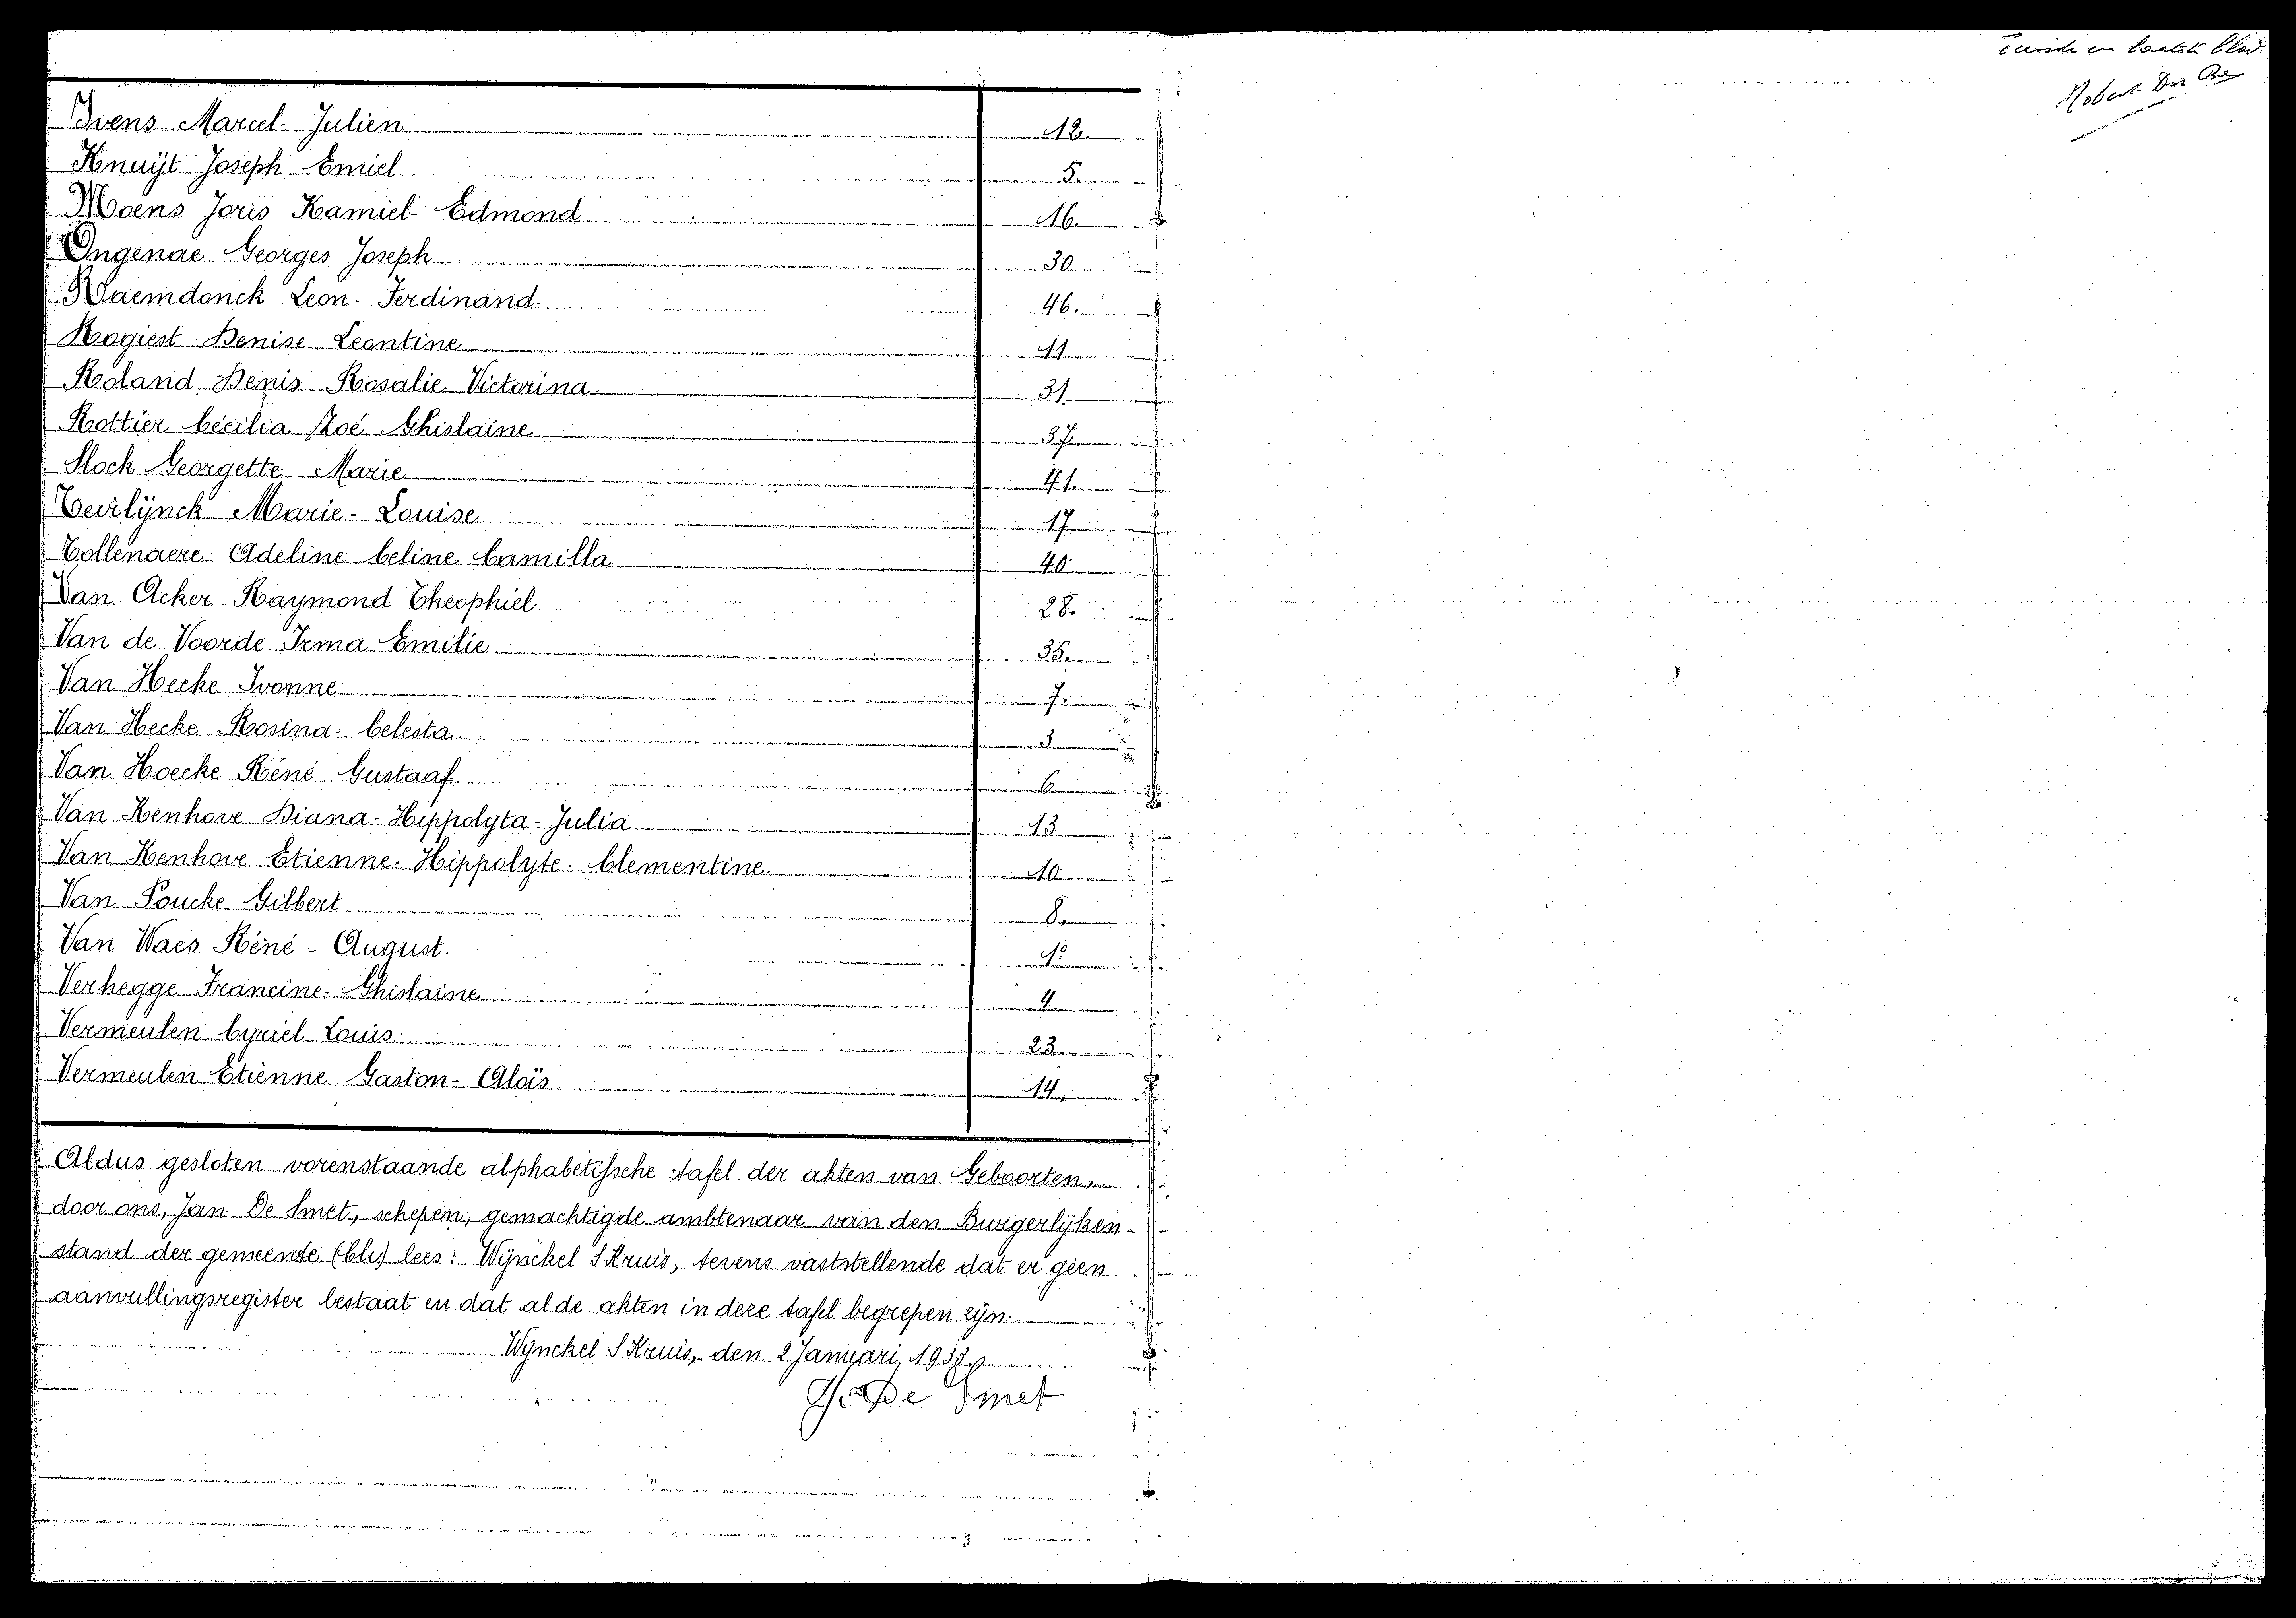 Ivens Marcel Julien 12.
Knuÿt Joseph Emiel 5.
Moens Joris Kamiel Edmond 16.
Ongenae Georges Joseph 30.
Raemdonck Leon Ferdinand. 46.
Rogiest Denise Leontine 11.
Roland Denis Rosalie Victorina. 31.
Rottier Cécilia Zoé Ghislaine 37.
Slock Georgette Marie 41.
Tevilÿnck Marie-Louise 17.
Tollenaere Adeline Celine Camilla 40.
Van Acker Raymond Theophiel 28.
Van de Voorde Irma Emilie
Van Hecke Ivonne 7.
Van Hecke Rosina-Celesta. 3
Van Hoecke Réné Gustaaf. 6.
Van Kenhove Diana-Hippolyta-Julia 13
Van Kenhove Etienne-Hippolyte-Clementine. 10
Van Poucke Gilbert 8.
Van Waes Réné-August.
Verhegge Francine-Ghislaine 4.
Vermeulen Cyriel Louis. 23.
Vermeulen Etiénne Gaston-Aloïs 14.
Aldus gesloten vorenstaande alphabetissche tafel der akten van Geboorten,
door ons, Jan De Smet, schepen, gemachtigde ambtenaar van den Burgerlÿken-
stand der gemeente lees: Wÿnckel S Kruis, tevens vaststellende dat er geen
aanvullingsregister bestaat en dat al de akten in deze tafel begrepen zÿn.
Wÿnckel S Kruis, den 2 Januari,
De Smet
en laatste blad
Robert